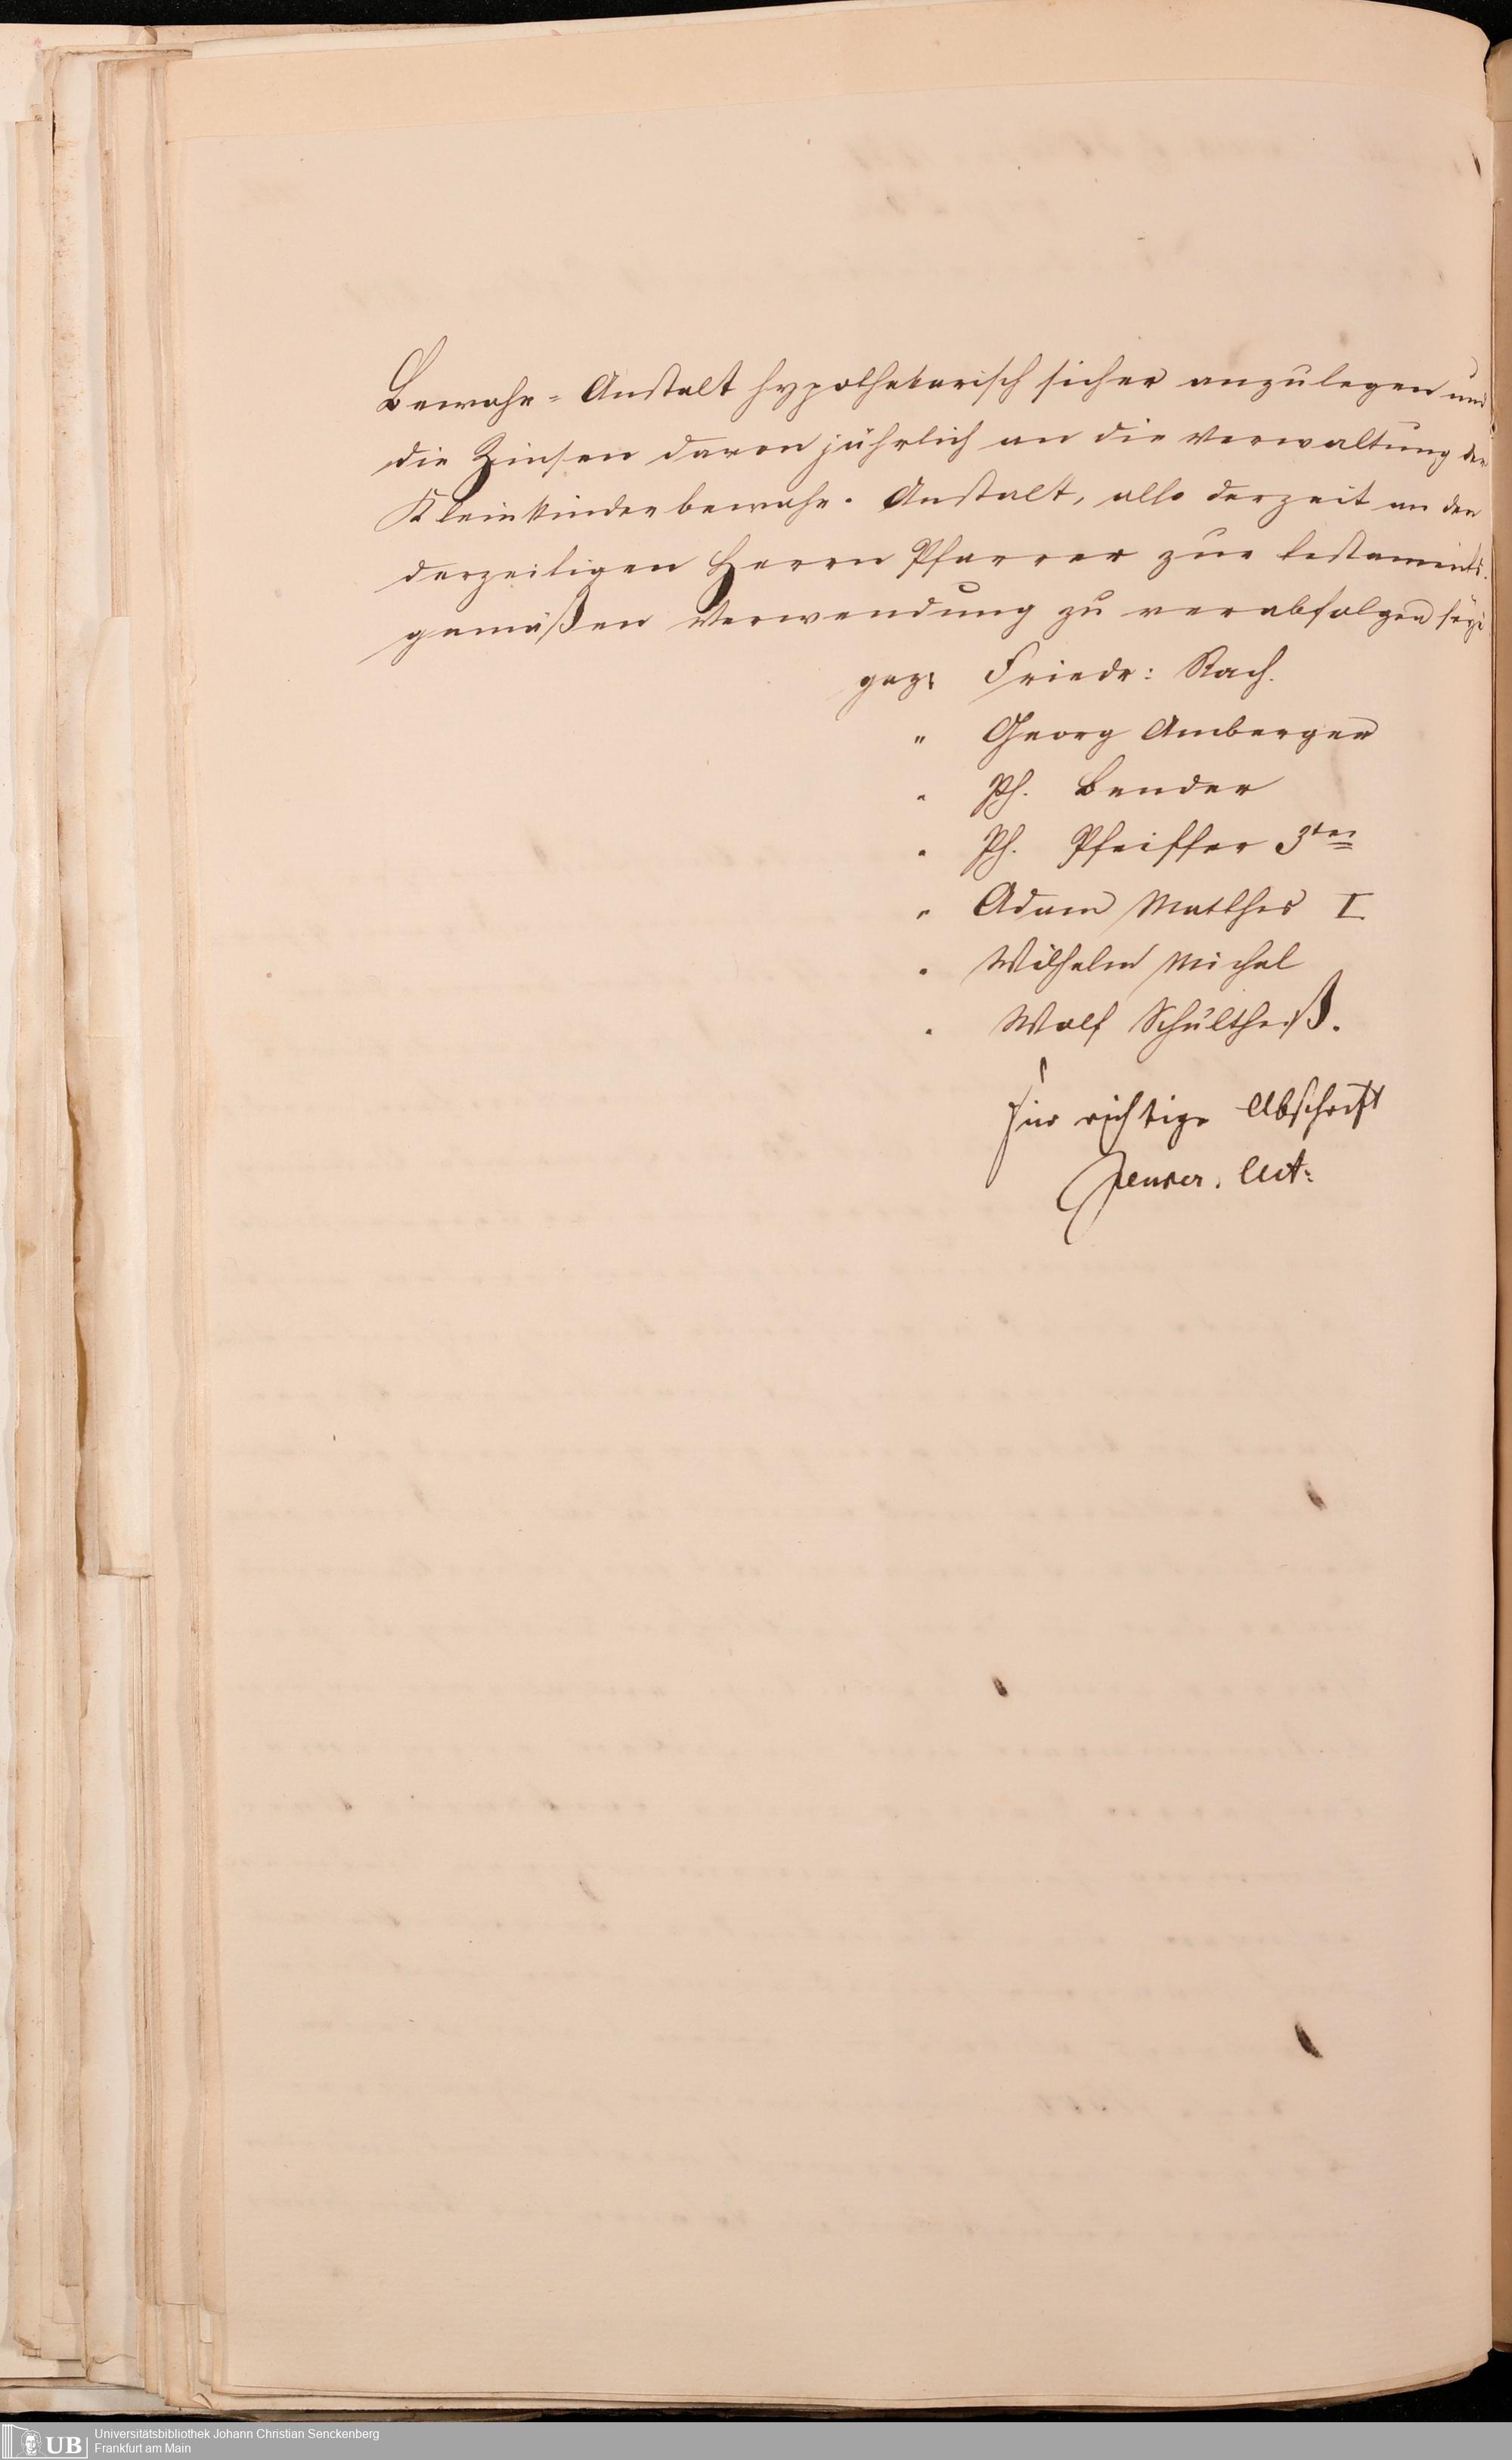 Bewahr-Anstalt hypothekarisch sicher anzulegen und
die Zinsen davon jährlich an die Verwaltung der
Kleinkinderbewahr-Anstalt, also derzeit an den
derzeitigen Herrn Pfarrer zur testaments-
gemäßen Verwendung zu verabfolgen sey.
gez: Friedr: Rach.
" Georg Amberger
" Ph. Bender
" Ph. Pfeiffer 3ter
" Adam Matthes I
" Wilhelm Michel
" Wolf Schultheiß.
Für richtige Abschrift
UB Universitätsbibliothek Johann Christian Senckenberg
Frankfurt am Main